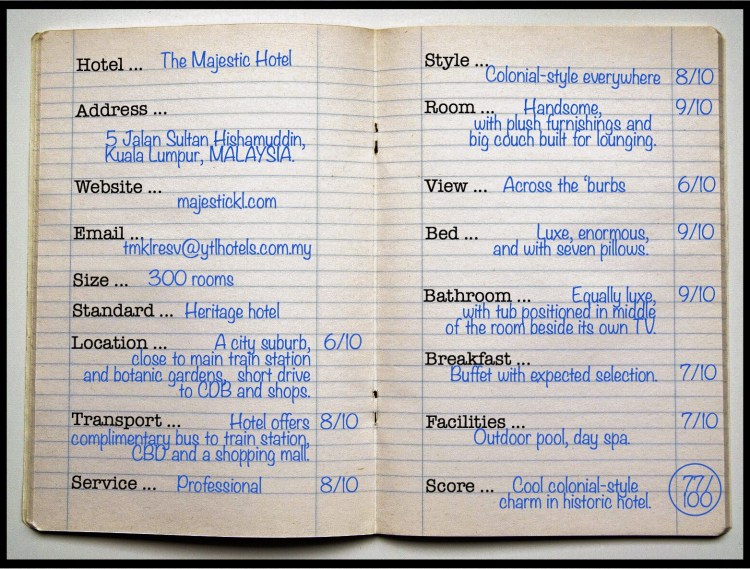 Hotel ... The Majestic Hotel
Address ...
5 Jalan Sultan Hishamuddin,
Kuala Lumpur, MALAYSIA.
Website ...
majestickl.com
Email ...
tmklresv@ytlhotels.com.my
Size ... 300 rooms
Standard ... Heritage hotel
Location ... A city suburb, 6/10
close to main train station
and botanic gardens, short drive
to CDB and shops.
Transport ... Hotel offers 8/10
complimentary bus to train station,
CBD and a shopping mall.
Service ... Professional 8/10
Style ...
Colonial-style everywhere 8/10
Room ... Handsome, 9/10
with plush furnishings and
big couch built for lounging.
View ... Across the 'burbs 6/10
Bed ... Luxe, enormous, 9/10
and with seven pillows.
Bathroom ... Equally luxe, 9/10
with tub positioned in middle
of the room beside its own TV.
Breakfast ...
Buffet with expected selection. 7/10
Facilities ... 7/10
Outdoor pool, day spa.
Score ... Cool colonial-style 77/
charm in historic hotel. 100